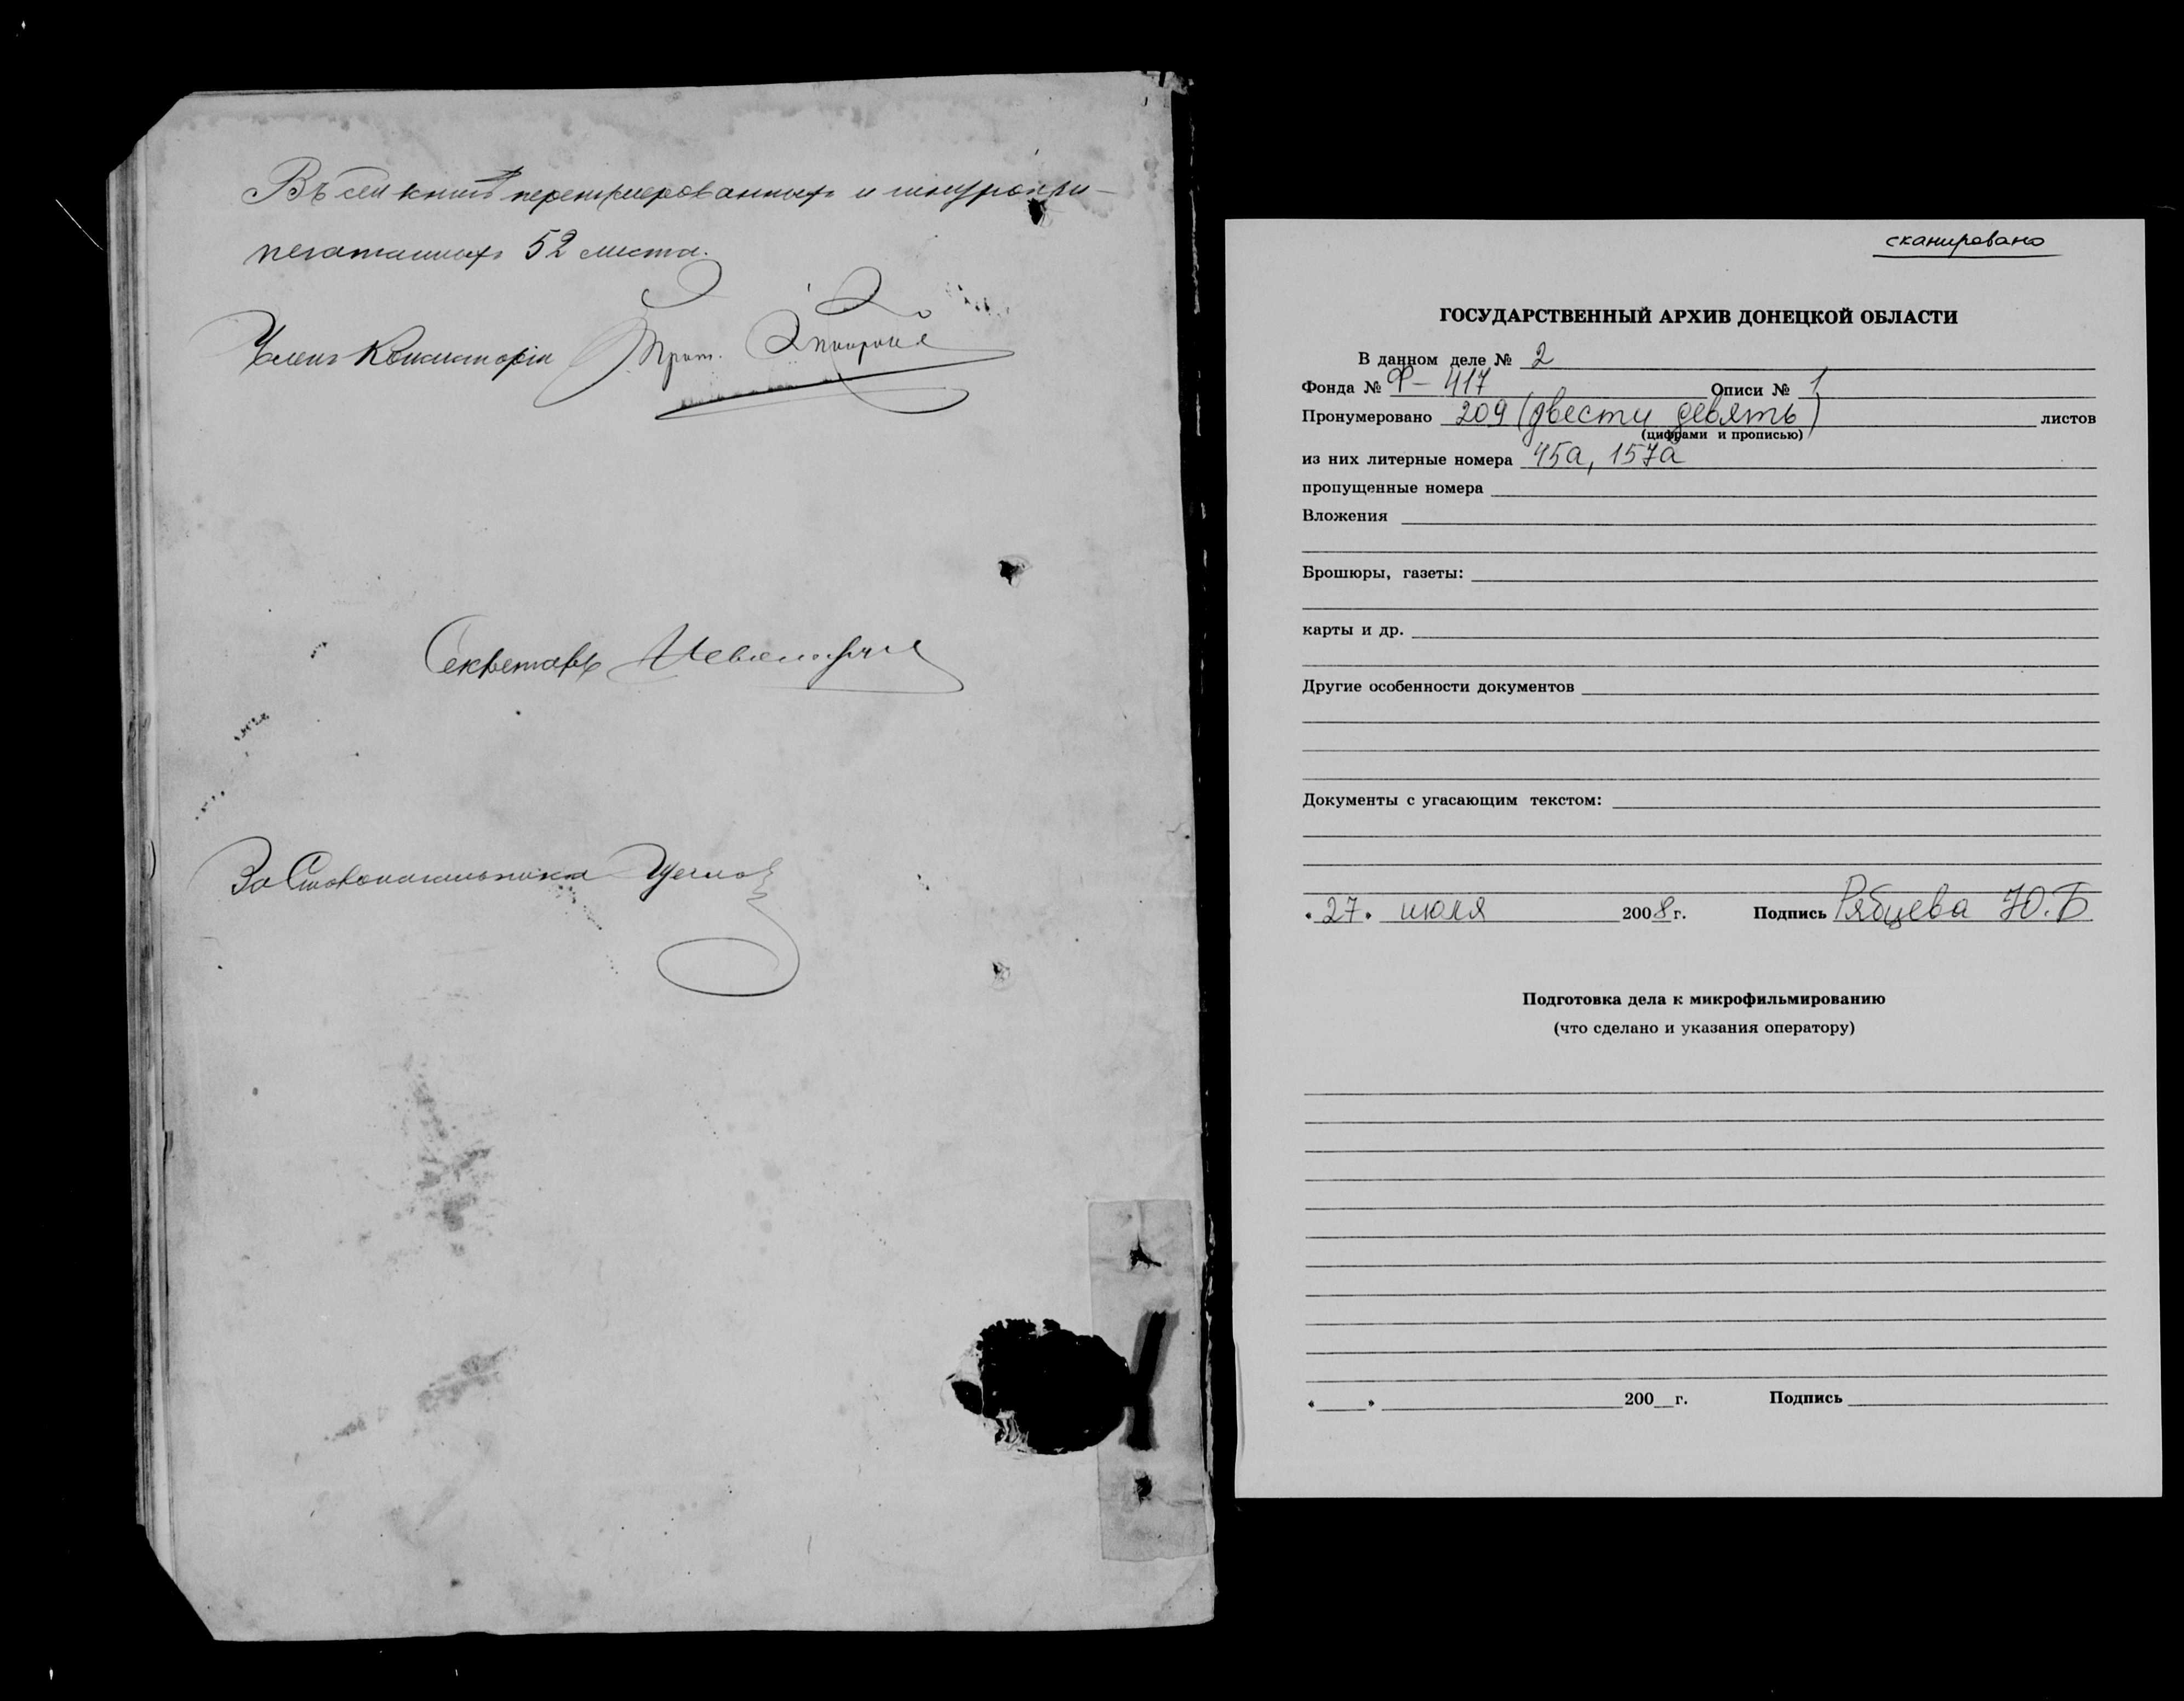 Въ сей книгѣ перенумерованныхъ и шнуропри-
печатанныхъ 52 листа.
Членъ Консисторіи Прот.
Секретарь
За Столоначальника
сканировано
ГОСУДАРСТВЕННЫЙ АРХИВ ДОНЕЦКОЙ ОБЛАСТИ
В данном деле № 2
Фонда № Ф-417 Описи № 1
Пронумеровано 209 (двести девять) листов
(цифрами и прописью)
из них литерные номера 45а, 157а
пропущенные номера
Вложения
Брошюры, газеты:
карты и др.
Другие особенности документов
Документы с угасающим текстом:
« 27 » июля 2008 г. Подпись Рябцева Ю.Б
Подготовка дела к микрофильмированию
(что сделано и указания оператору)
« » 200 г. Подпись